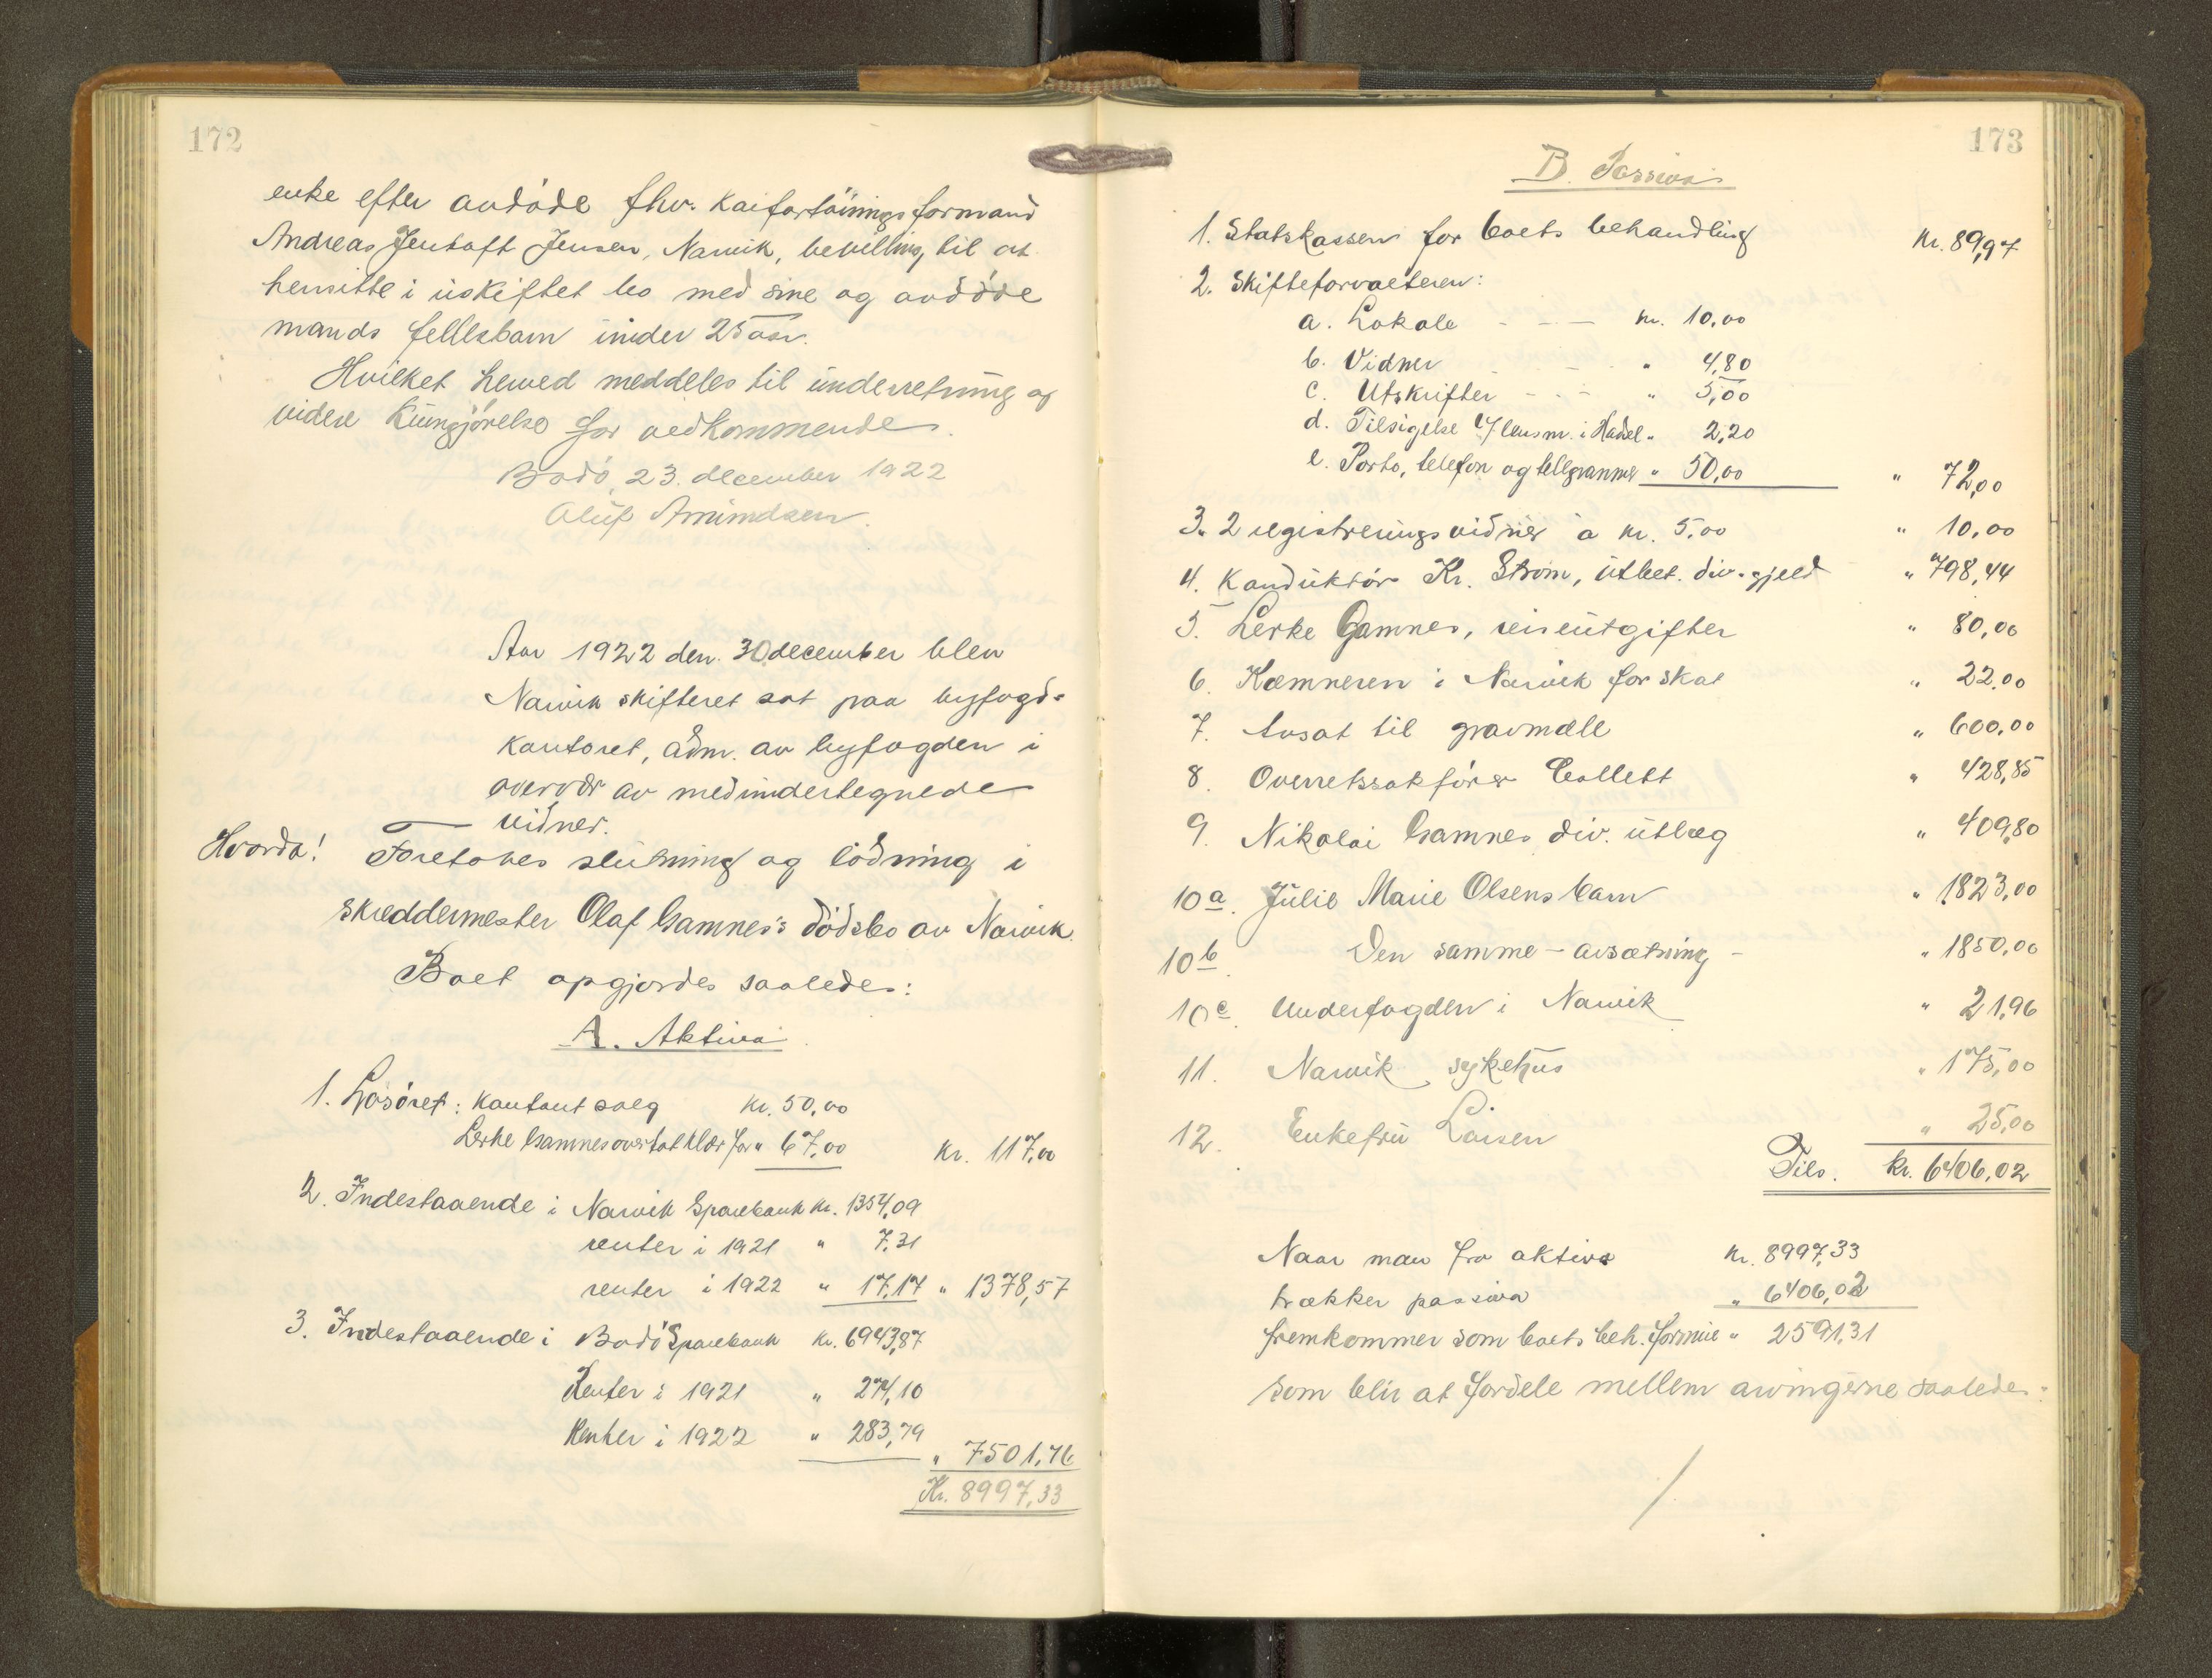 172
enke efter avdöde fhv. Kaifortöiningsformand
Andreas Jentoft Jensen, Narvik, bevilling til at
hensitte i uskiftet bo med sine og avdöde
mands fellesbarn under 25 aar.
Hvilket herved meddeles til underretning og
videre kungjörelse for vedkommende.
Bodö, 23. december 1922
Oluf Amundsen.
Aar 1922 den 30 december blev
Narvik skifteret sat paa byfogd-
kontoret, adm. av byfogden i
overvær av medundertegnede
vidner.
Hvorda! Foretoges slutning og lodning i
skreddermester Olaf Gamnes's dödsbo av Narvik.
Boet opgjordes saaledes:
A. Aktiva
1. Lösöret: Kontant salg Kr. 50,00
Lerke Gamnes overtat klær for " 67,00 Kr. 117,00
2. Indestaaende i Narvik Sparebank Kr. 1354,09
renter i 1921 " 7,31
renter i 1922 " 17,17 " 1378,57
3. Indestaaende i Bodö Sparebank Kr. 6943,87
Renter i 1921 " 274,10
Renter i 1922 " 283,79
" 7501,76
Kr. 8997,33
173
B. Passiva
1. Statskassen for boets behandling Kr. 89,97
2. Skifteforvalteren:
a. Lokale - - - Kr. 10,00
b. Vidner - - - " 4,80
c. Utskrifter - - - " 5,00
d. Tilsigelse v/ lensm. i Hadsel " 2,20
e. Porto, telefon og tellgrammer " 50,00 " 72,00
3. 2 registreringsvidner a kr. 5,00 " 10,00
4. Konduktör Kr. Ström, utbet. div. gjeld " 2798,44
5. Lerke Gamnes, reiseutgifter " 80,00
6. Kæmneren i Narvik for skat " 22,00
7. Avsat til gravmæle " 600,00
8. Overretssakförer Collett " 428,85
9. Nikolai Gamnes div. utlæg " 409,80
10a. Julie Marie Olsens barn " 1823,00
10b. Den samme - avsætning - " 1850,00
10c. Underfogden i Narvik " 21,96
11. Narvik sykehus " 175,00
12. Enkefru Larsen " 25,00
Tils. kr. 6406,02
Naar man fra aktiva Kr. 8997,33
trækker passiva " 6406,02
fremkommer som boets beh. formue " 2591,31
som blir at fordele mellem arvingerne saaledes: